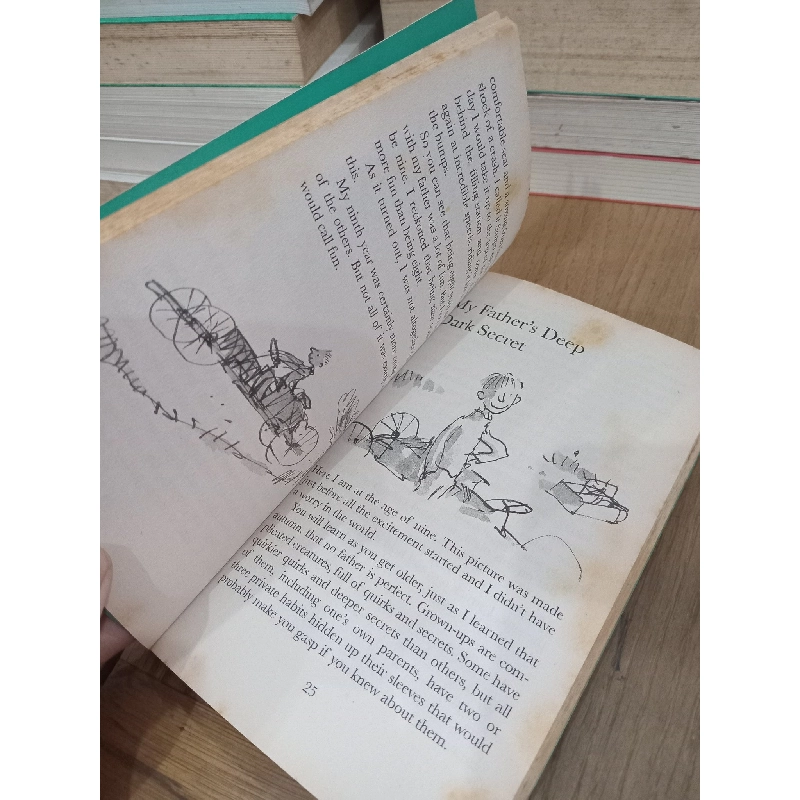 comfortable seat and a
shock of a crash. I called it
day I would take it up to the
behind the filling station and
again at incredible speeds, riding
the bumps.
So you can see that being eight
with my father was a lot of fun. But
be nine. I reckoned that being nine
more fun than being eight.
As it turned out, I was not altogether
this.
My ninth year was certainly more
of the others. But not all of it was
would call fun.
My Father's Deep
Dark Secret
Here I am at the age of nine. This picture was made
just before all the excitement started and I didn't have
a worry in the world.
You will learn as you get older, just as I learned that
autumn, that no father is perfect. Grown-ups are com-
plicated creatures, full of quirks and secrets. Some have
quirkier quirks and deeper secrets than others, but all
of them, including one's own parents, have two or
three private habits hidden up their sleeves that would
probably make you gasp if you knew about them.
25